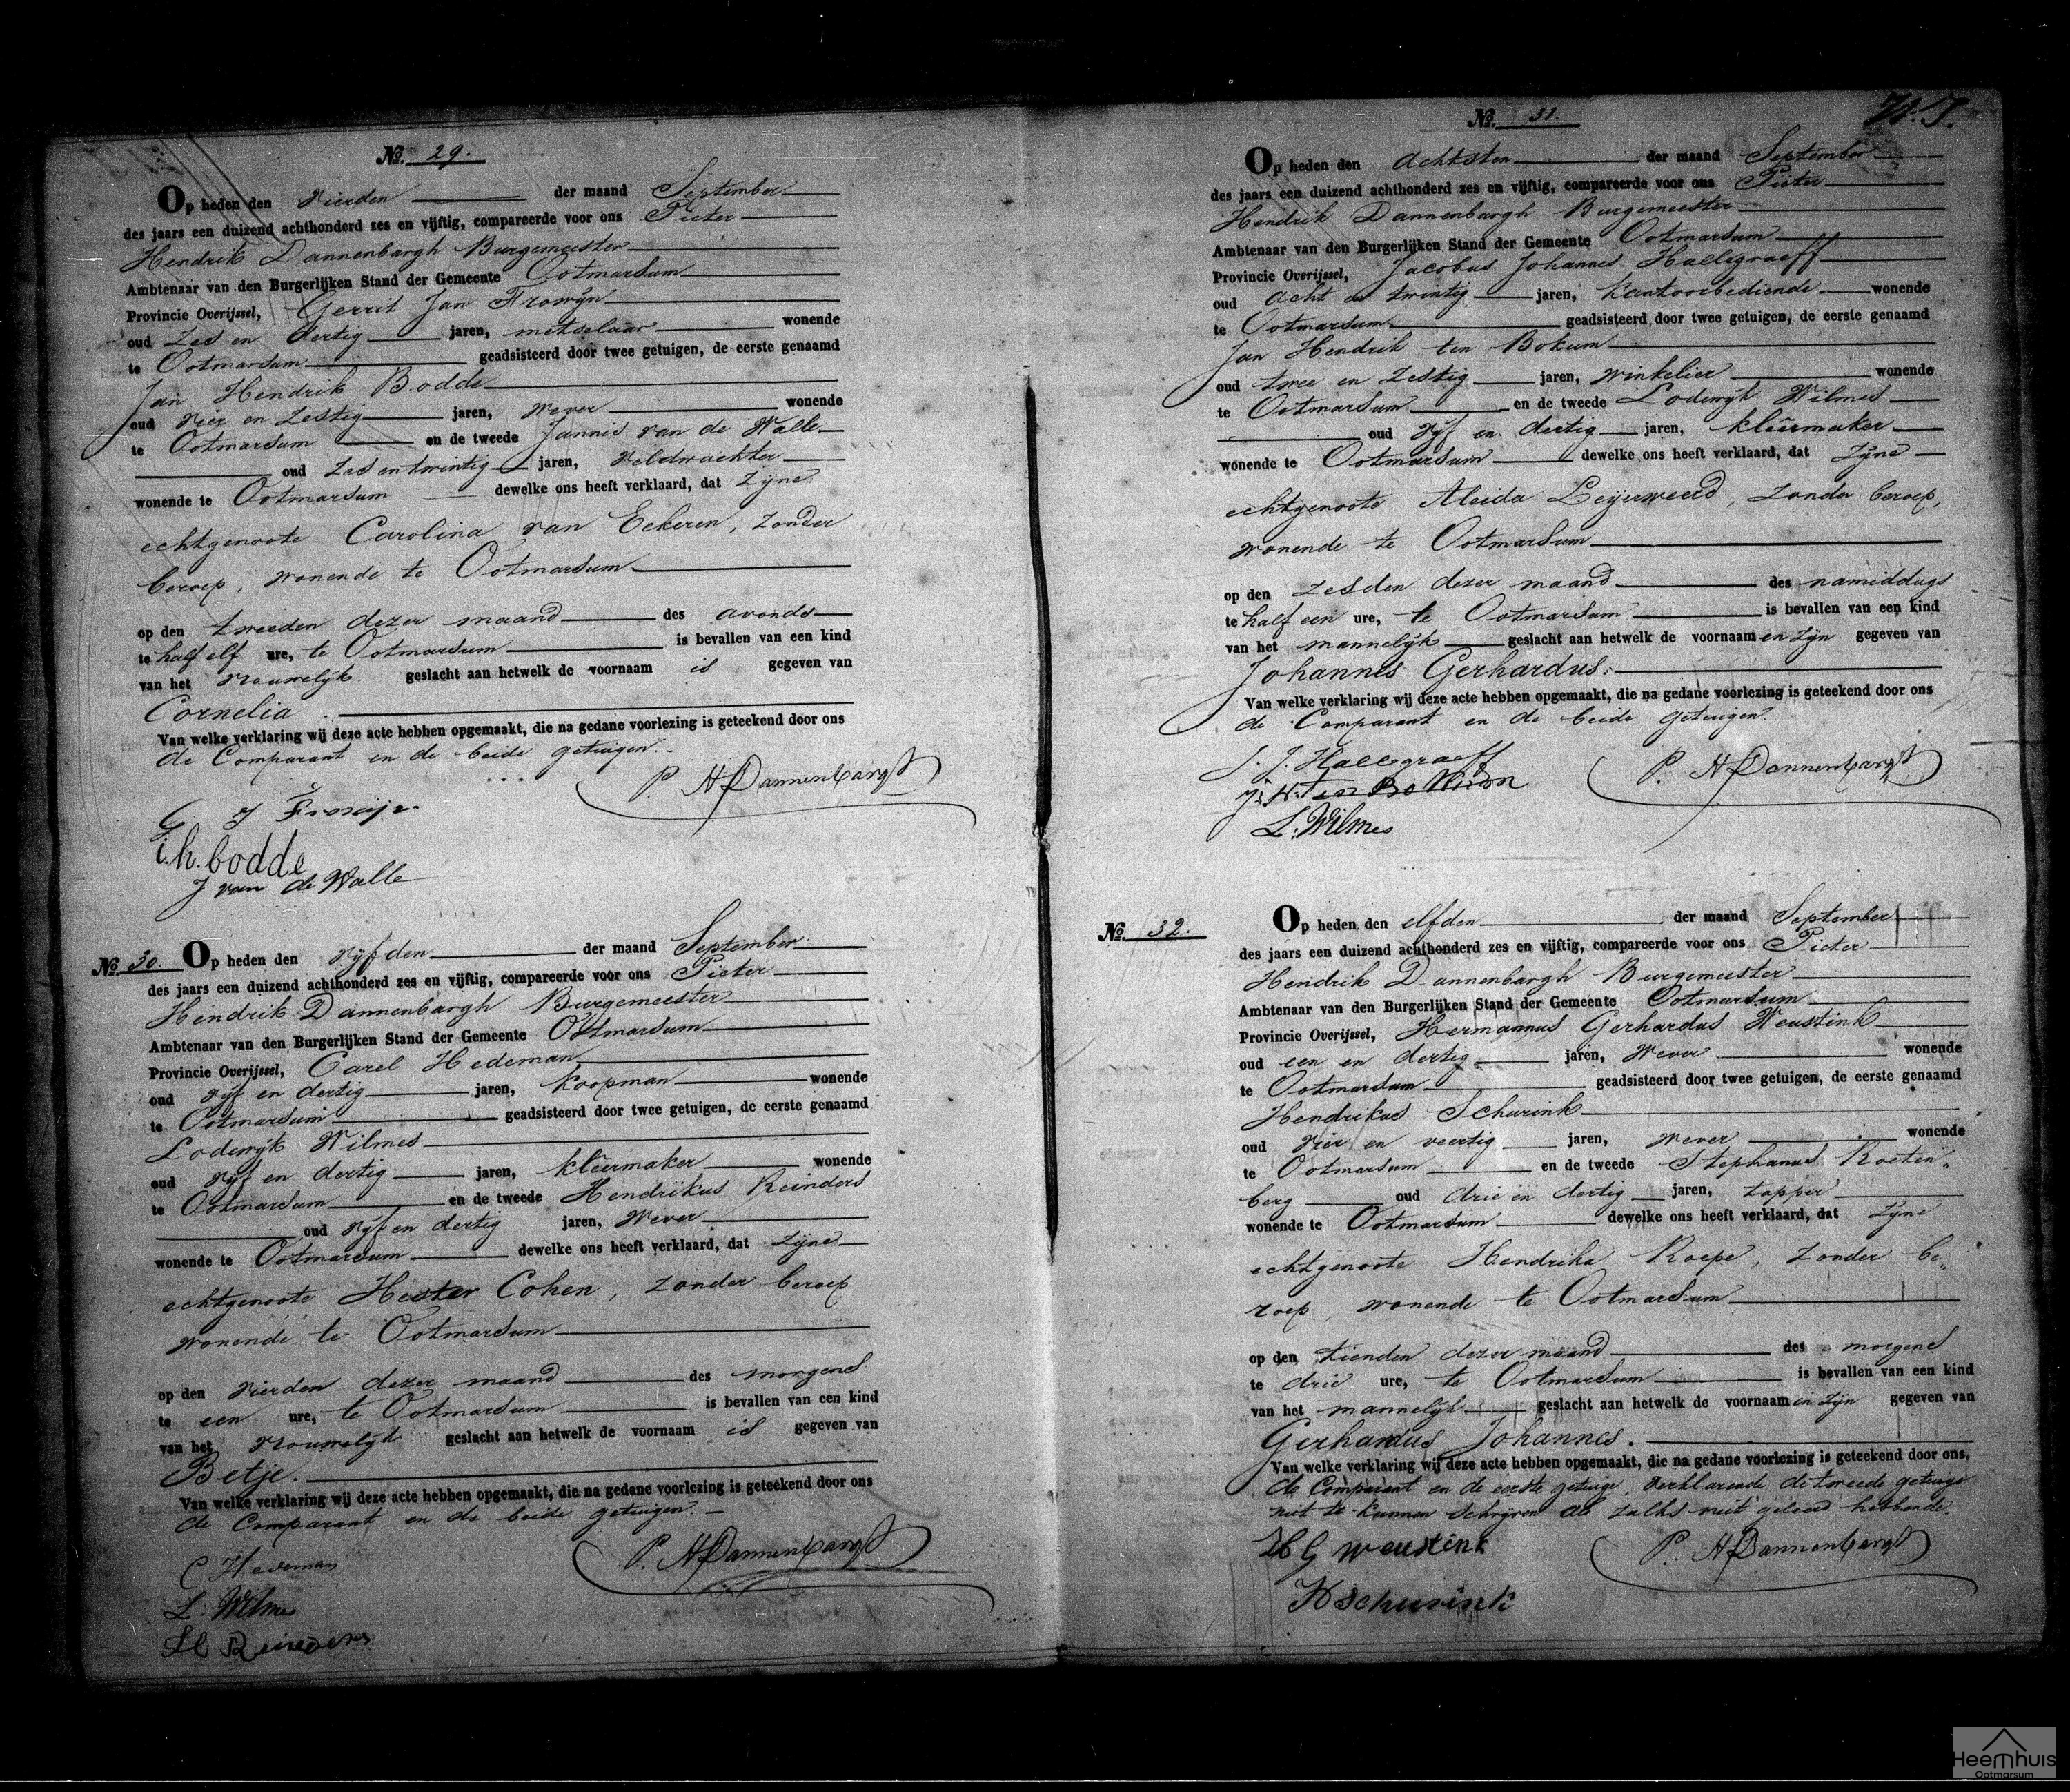 No. 29.
Op heden den vierden der maand September
des jaars een duizend achthonderd zes en vijftig, compareerde voor ons Pieter
Hendrik Dannenbargh Burgemeester
Ambtenaar van den Burgerlijken Stand der Gemeente Ootmarsum
Provincie Overijssel, Gerrit Jan Frowijn
oud zes en dertig jaren, metselaar wonende
te Ootmarsum geadsisteerd door twee getuigen, de eerste genaamd
Jan Hendrik Bodde
oud vier en zestig jaren, wever wonende
te Ootmarsum en de tweede Jannis van de Walle
oud zes en twintig jaren, veldwachter
wonende te Ootmarsum dewelke ons heeft verklaard, dat zijne
echtgenoote Carolina van Eekeren, zonder
beroep, wonende te Ootmarsum
op den tweeden dezer maand des avonds
te half elf ure, te Ootmarsum is bevallen van een kind
van het vrouwelijk geslacht aan hetwelk de voornaam is gegeven van
Cornelia.
Van welke verklaring wij deze acte hebben opgemaakt, die na gedane voorlezing is geteekend door ons
de Comparant en de beide getuigen.
P. H Dannenbargh
G J
i.h.bodde
J van de Walle
No. 30. Op heden den vijfden der maand September
des jaars een duizend achthonderd zes en vijftig, compareerde voor ons Pieter
Hendrik Dannenbargh Burgemeester
Ambtenaar van den Burgerlijken Stand der Gemeente Ootmarsum
Provincie Overijssel, Carel Hedeman
oud vijf en dertig jaren, koopman wonende
te Ootmarsum geadsisteerd door twee getuigen, de eerste genaamd
Lodewijk Wilmes
oud vijf en dertig jaren, kleermaker wonende
te Ootmarsum en de tweede Hendrikus Reinders
oud vijf en dertig jaren, wever
wonende te Ootmarsum dewelke ons heeft verklaard, dat zijne
echtgenoote Hester Cohen, zonder beroep
wonende te Ootmarsum
op den vierden dezer maand des morgens
te een ure, te Ootmarsum is bevallen van een kind
van het vrouwelijk geslacht aan hetwelk de voornaam is gegeven van
Betje.
Van welke verklaring wij deze acte hebben opgemaakt, die na gedane voorlezing is geteekend door ons
de Comparant en de beide getuigen.
P. H Dannenbargh
C Hedeman
L. Wilmes
H Reinders
No. 31.
Op heden den achtsten der maand September
des jaars een duizend achthonderd zes en vijftig, compareerde voor ons Pieter
Hendrik Dannenbargh Burgemeester
Ambtenaar van den Burgerlijken Stand der Gemeente Ootmarsum
Provincie Overijssel, Jacobus Johannes Hallegraeff
oud acht en twintig jaren, kantoorbediende wonende
te Ootmarsum geadsisteerd door twee getuigen, de eerste genaamd
Jan Hendrik ten Bokum
oud twee en zestig jaren, winkelier wonende
te Ootmarsum en de tweede Lodewijk Wilmes
oud vijf en dertig jaren, kleermaker
wonende te Ootmarsum dewelke ons heeft verklaard, dat zijne
echtgenoote Aleida Leijerweerd, zonder beroep,
wonende te Ootmarsum
op den zesden dezer maand des namiddags
te half een ure, te Ootmarsum is bevallen van een kind
van het mannelijk geslacht aan hetwelk de voornaamen zijn gegeven van
Johannes Gerhardus.
Van welke verklaring wij deze acte hebben opgemaakt, die na gedane voorlezing is geteekend door ons
de Comparant en de beide getuigen.
J. J. Hallegraeff
P. H Dannenbargh
L. Wilmes
No. 32. Op heden den elfden der maand September
des jaars een duizend achthonderd zes en vijftig, compareerde voor ons Pieter
Hendrik Dannenbargh Burgemeester
Ambtenaar van den Burgerlijken Stand der Gemeente Ootmarsum
Provincie Overijssel, Hermannus Gerhardus Weustink
oud een en dertig jaren, wever wonende
te Ootmarsum geadsisteerd door twee getuigen, de eerste genaamd
Hendrikus Schurink
oud vier en veertig jaren, wever wonende
te Ootmarsum en de tweede Stephanus Roeten„
berg oud drie en dertig jaren, tapper
wonende te Ootmarsum dewelke ons heeft verklaard, dat zijne
echtgenoote Hendrika Roepe, zonder be„
roep, wonende te Ootmarsum
op den tienden dezer maand des morgens
te drie ure, te Ootmarsum is bevallen van een kind
van het mannelijk geslacht aan hetwelk de voornaamen zijn gegeven van
Gerhardus Johannes.
Van welke verklaring wij deze acte hebben opgemaakt, die na gedane voorlezing is geteekend door ons,
de Comparant en de eerste getuige, verklarende de tweede getuige
niet te kunnen schrijven als zulks niet geleerd hebbende.
HG Weustink
P. H Dannenbargh
H Schurink
Heemhuis
Ootmarsum